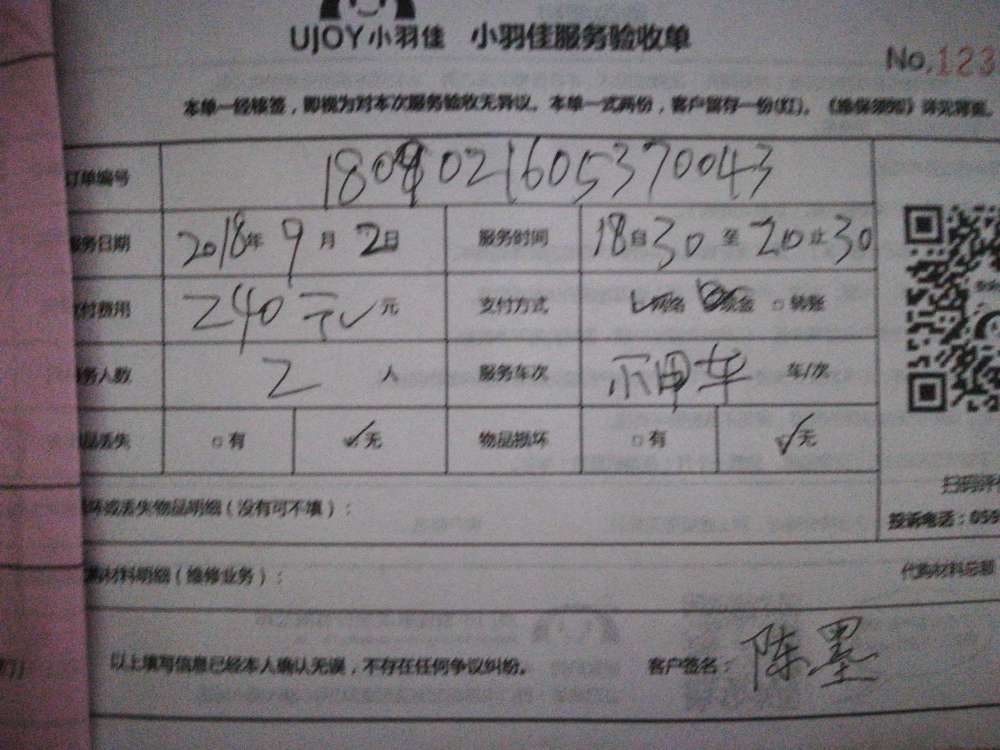 UJOY小羽佳 小羽佳服务验收单
No.123
本单一经修签,即视为对本次服务验收无异议。本单一式两份,客户留存一份(红)。《维保须知》详见背面。
订单编号 180902160537​0043
服务日期 2018年9月2日 服务时间 18自30至20止30
付费用 240元 元 支付方式 网络 现金 □转账
务人数 2 人 服务车次 不用车 车/次
品丢失 □有 ✓无 物品损坏 □有 ✓无
坏或丢失物品明细(没有可不填):
扫码评
投诉电话:059
购材料明细(维修业务):
代购材料总额
以上填写信息已经本人确认无误,不存在任何争议纠纷。 客户签名:陈墨